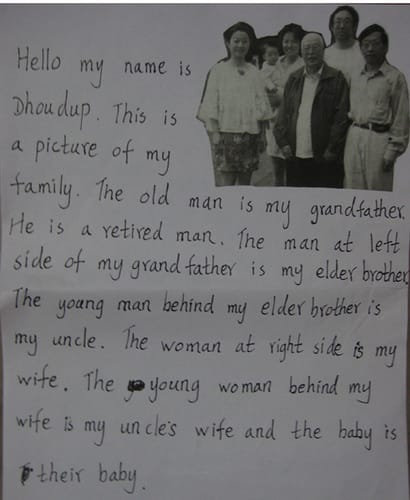 Hello my name is
Dhoudup. This is
a picture of my
family. The old man is my grandfather.
He is a retired man. The man at left
side of my grandfather is my elder brother.
The young man behind my elder brother is
my uncle. The woman at right side is my
wife. The young woman behind my
wife is my uncle's wife and the baby is
their baby.